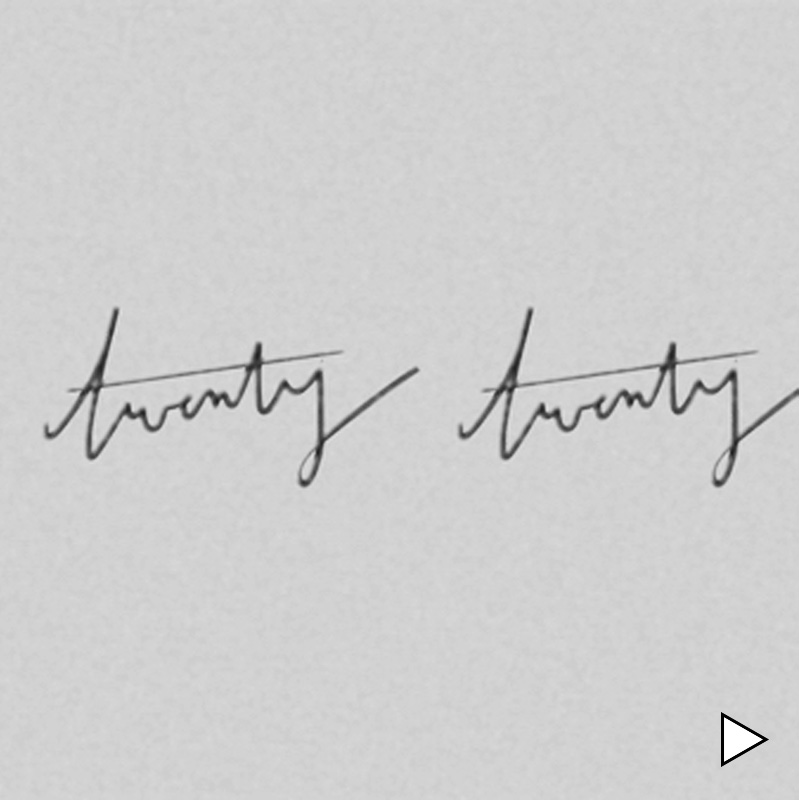 twenty twenty